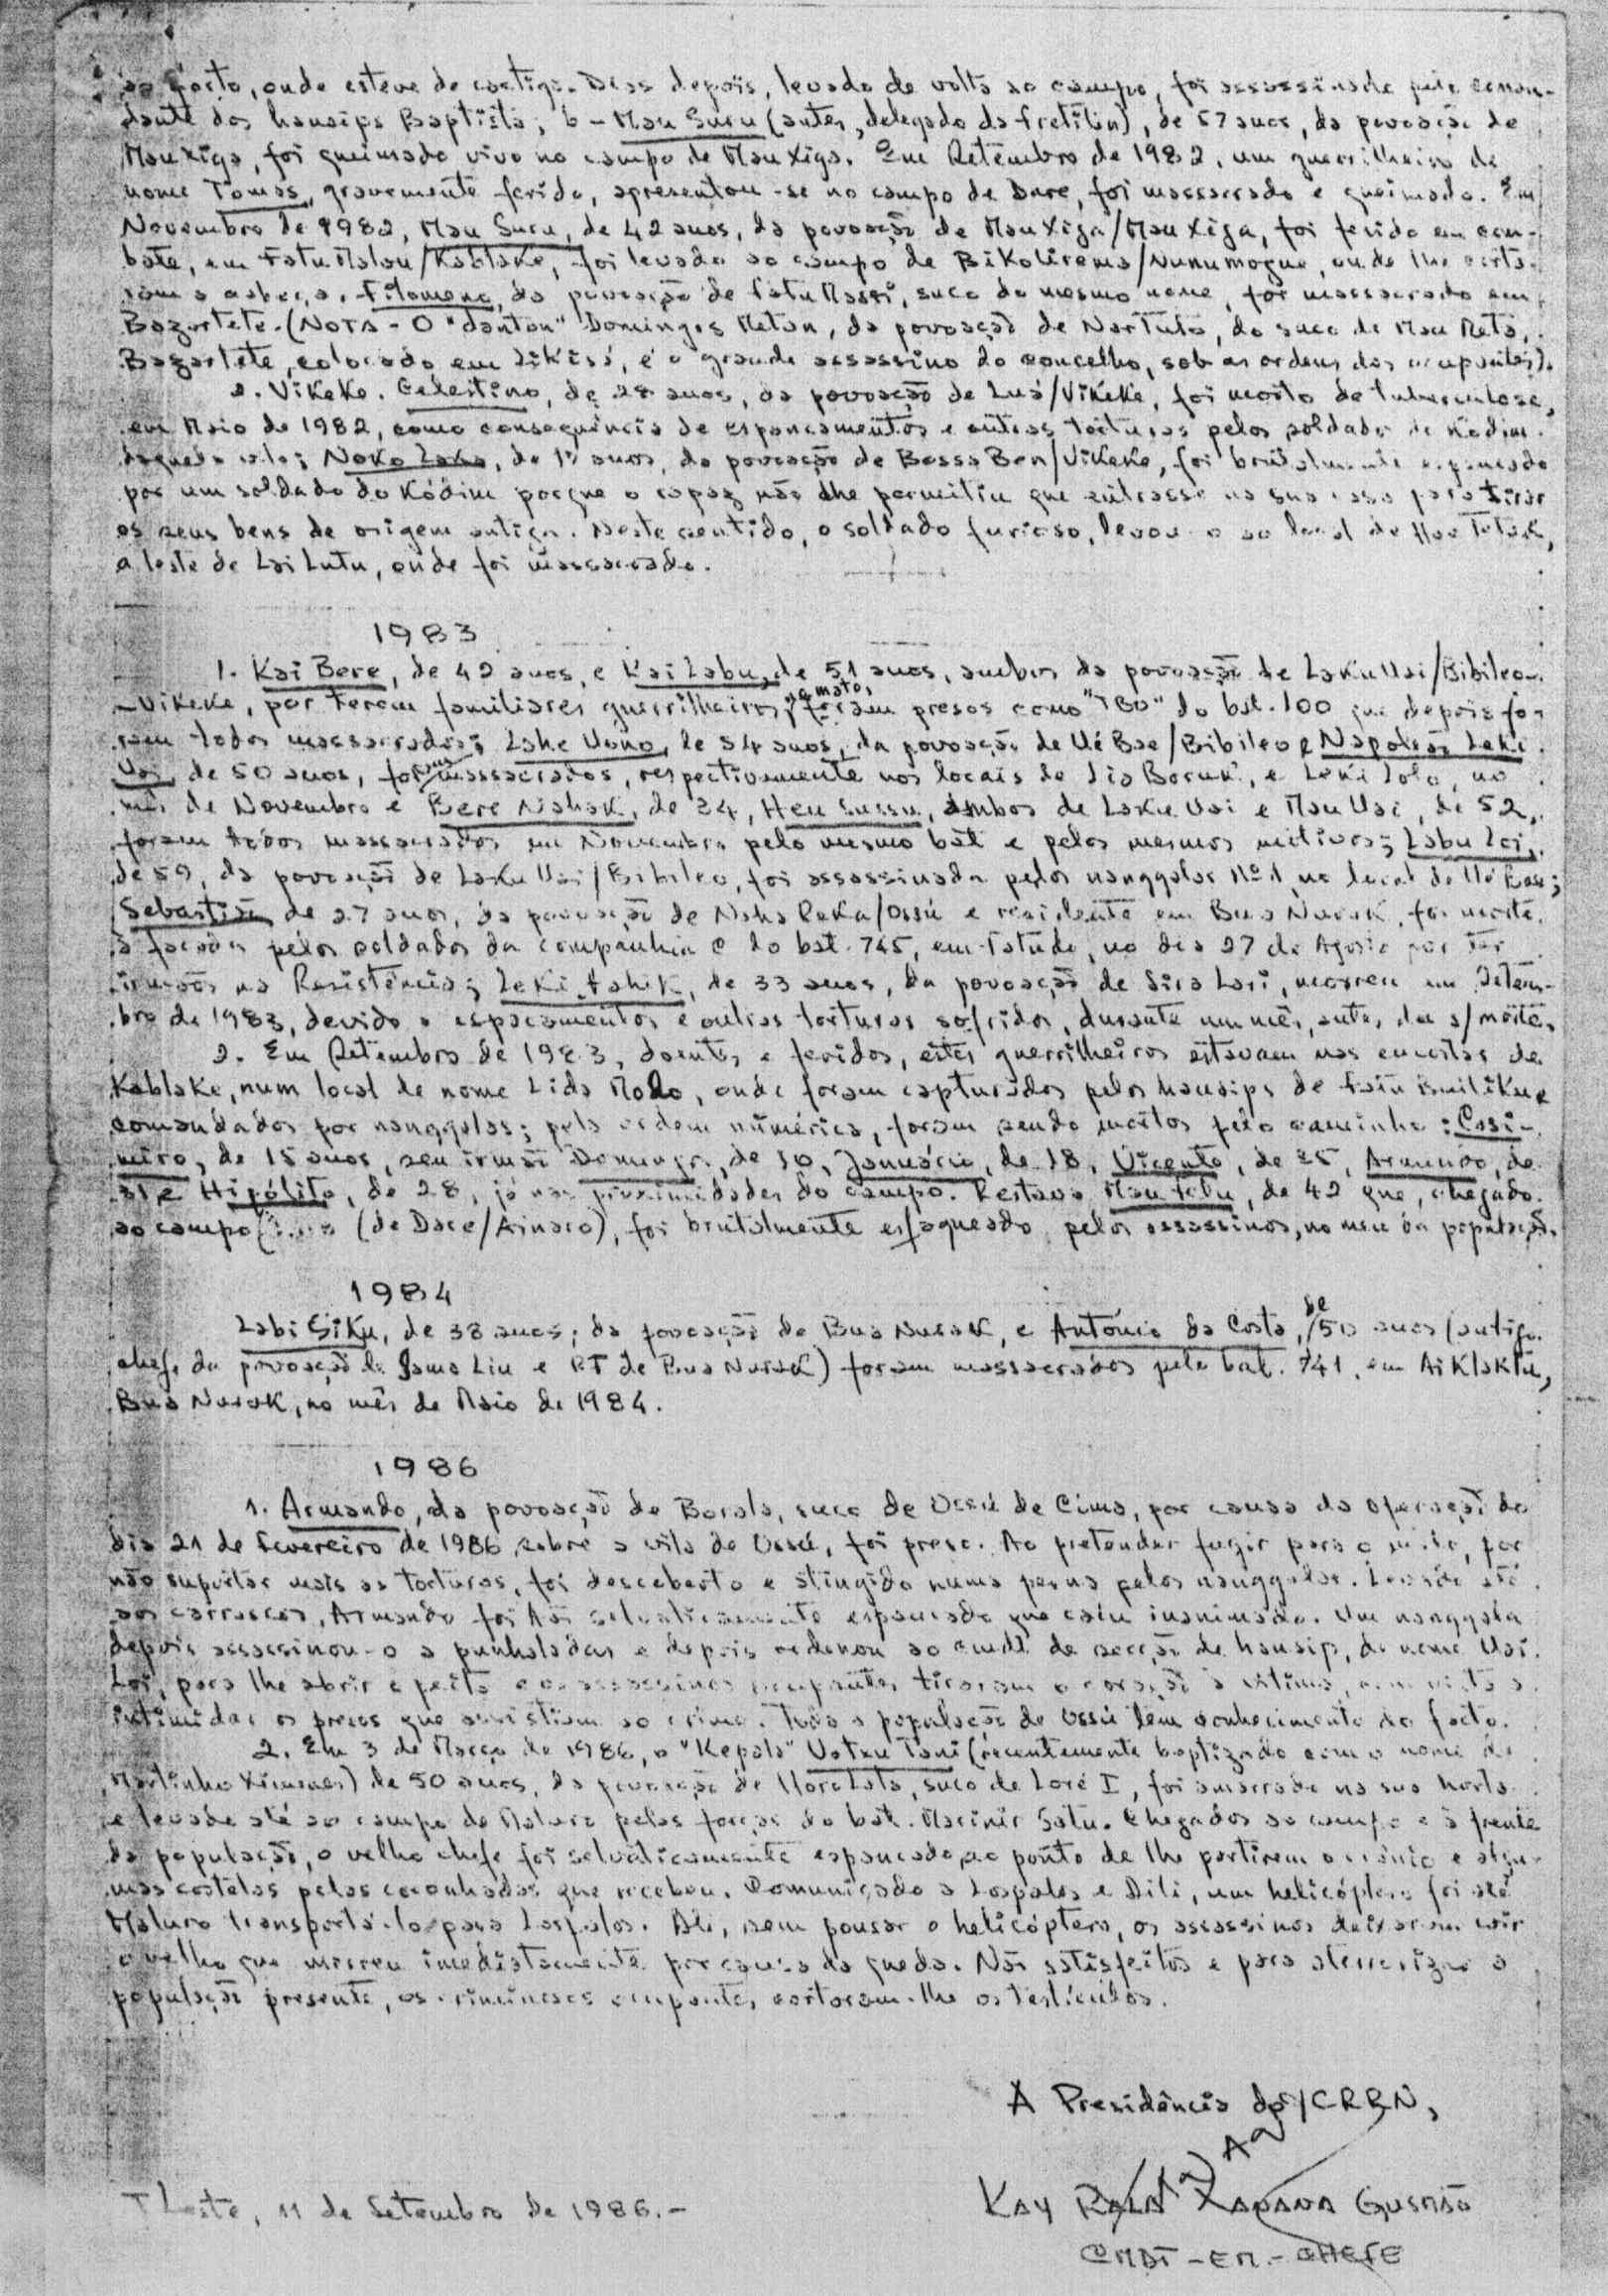 ao Posto, onde esteve de castigo. Dias depois, levado de volta ao campo, foi assassinado pelo coman-
dante dos hansips Baptista; 6 - Mau Suru (antes, delegado da Fretilin), de 57 anos, da povoação de
Mau Xiga, foi queimado vivo no campo de Mau Xiga. Em Setembro de 1982, um guerrilheiro de
nome Tomás, gravemente ferido, apresentou-se no campo de Dare, foi massacrado e queimado. Em
Novembro de 1982, Mau Suru, de 42 anos, da povoação de Mau Xiga/Mau Xiga, foi ferido em com-
bate, em Fatu Malau/Kablake, foi levado ao campo de Bikolirema/Nunumogue, onde lhe corta-
ram a cabeça. Filomeno, da povoação de Fatu Massi, suco do mesmo nome, foi massacrado em
Bazartete. (NOTA - O "danton" Domingos Metan, da povoação de Nartuto, do suco de Mau Meta,
Bazartete, colocado em Likisá, é o grande assassino do concelho, sob as ordens dos ocupantes).
2. Vikeke. Celestino, de 28 anos, da povoação de Luá/Vikeke, foi morto de tuberculose,
em Maio de 1982, como consequência de espancamentos e outras torturas pelos soldados do Kódim
daquela vila; Noko Loko, de anos, da povoação de Bessa Ben/Vikeke, foi brutalmente espancado
por um soldado do Kódim porque o rapaz não lhe permitiu que entrasse na sua casa para tirar
os seus bens de origem antiga. Neste sentido, o soldado furioso, levou-o ao local de
a leste de Lai Lutu, onde foi massacrado.
1983
1. Kai Bere, de 42 anos, e Kai Labu, de 51 anos, ambos da povoação de Laku Uai/Bibileo-
-Vikeke, por terem familiares guerrilheiros, no mato, foram presos como "TBO" do bat. 100 que depois fo-
ram todos massacrados; Lake Uono, de 54 anos, da povoação de Ué Bae/Bibileo e Napoleão Leki
Uai, de 50 anos, foram massacrados, respectivamente nos locais de Lia Boruk, e Leki Lolo, no
mês de Novembro e Bere Nahak, de 34, Heu Sussu, ambos de Laku Uai e Mau Uai, de 52,
foram todos massacrados em Novembro pelo mesmo bat e pelos mesmos motivos; Labu Loi,
de 59, da povoação de Laku Uai/Bibileo, foi assassinado pelos nanggalas Nº 1 no local de Ué Bae;
Sebastião de 27 anos, da povoação de Naha Reka/Ossú e residente em Bua Nurak, foi morto
à facadas pelos soldados da companhia C do bat. 745, em Fatudo, no dia 27 de Agosto por ter
irmãos na Resistência; Leki Tahik, de 33 anos, da povoação de Lira Lari, morreu em Setem-
bro de 1983, devido a espacamentos e outras torturas sofridos, durante um mês, antes da s/ morte.
2. Em Setembro de 1983, doentes e feridos, estes guerrilheiros estavam nas encostas de
Kablake, num local de nome Lida Molo, onde foram capturados pelos hansips de Fatu Builiku e
comandados por nanggalas; pela ordem numérica, foram sendo mortos pelo caminho: Casi-
miro, de 15 anos, seu irmão Domingos, de 10, Januário, de 18, Vicente, de 25, Armindo, de
31 e Hipólito, de 28, já nas proximidades do campo. Restava Mau Felu, de 42 que, chegado
ao campo (de Dare/Ainaro), foi brutalmente esfaqueado pelos assassinos, no meio da população.
1984
Labi Siku, de 38 anos; da povoação de Bua Nurak, e António da Costa, de 50 anos (antigo
chefe da povoação de Jama Liu e RT de Bua Nurak) foram massacrados pelo bat. 741, em Aiklaktú,
Bua Nurak, no mês de Maio de 1984.
1986
1. Armando, da povoação de Borala, suco de Ossú de Cima, por causa da operação do
dia 21 de Fevereiro de 1986 sobre a vila de Ossú, foi preso. Ao pretender fugir para o mato, por
não suportar mais as torturas, foi descoberto e atingido numa perna pelos nanggalas. Levado até
aos carrascos, Armando foi tão selvaticamente espancado que caiu inanimado. Um nanggala
depois assassinou-o a punhaladas e depois ordenou ao cmdt. de secção de hansip, de nome Uai
Loi, para lhe abrir o peito e os assassinos ocupantes tiraram o coração à vítima, com vista a
intimidar os presos que assistiam ao crime. Toda a população de Ossú tem conhecimento do facto.
2. Em 3 de Março de 1986, o "Kepala" Uatxu Tani (recentemente baptizado com o nome de
Martinho Ximenes) de 50 anos, da povoação de Horo Lata, suco de Loré I, foi amarrado na sua horta
e levado até ao campo de Maluro pelas forças do bat. Marinir Satu. Chegados ao campo e à frente
da população, o velho chefe foi selvaticamente espancado, ao ponto de lhe partirem o crânio e algu-
mas costelas pelas coronhadas que recebeu. Comunicado a Lospalos e Dili, um helicóptero foi até
Maluro transportá-lo para Lospalos. Ali, sem pousar o helicóptero, os assassinos deixaram cair
o velho que morreu imediatamente por causa da queda. Não satisfeitos e para aterrorizar a
população presente, os criminosos ocupantes cortaram-lhe os testículos.
A Presidência do/CRRN,
KAY RALA XANANA GUSMÃO
CMDT-EM-CHEFE
T Leste, 11 de Setembro de 1986.-